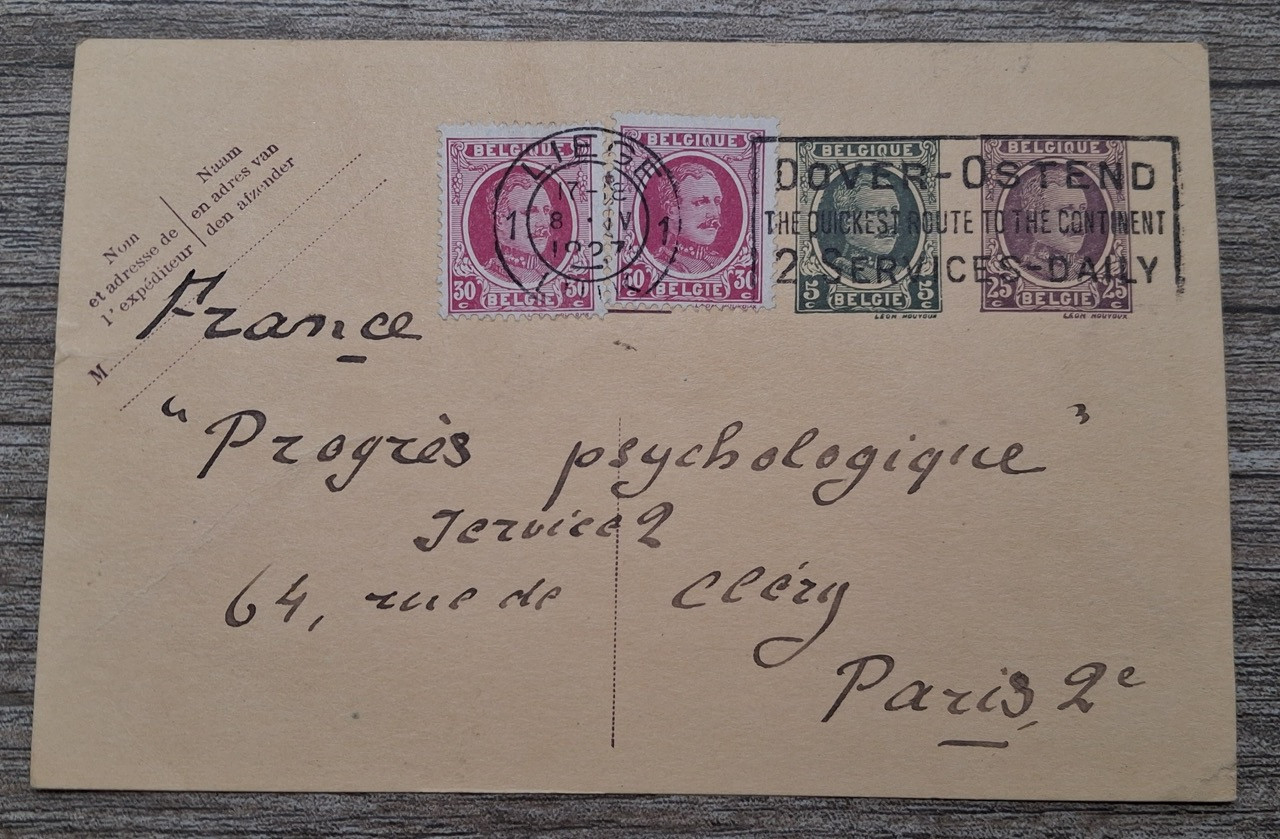 Nom
et adresse de
l'expéditeur
Naam
en adres van
den afzender
M
BELGIQUE
30c 30c
BELGIE
BELGIQUE
30c 30c
BELGIE
LEON HOUYOUX
LIEGE
1 1
17-18
8 IV
1927
BELGIQUE
5c 5c
BELGIE
LEON HOUYOUX
BELGIQUE
25c 25c
BELGIE
LEON HOUYOUX
DOVER-OSTEND
THE QUICKEST ROUTE TO THE CONTINENT
2 SERVICES-DAILY
France
"Progrès psychologique"
Service 2
64, rue de Cléry
Paris, 2e